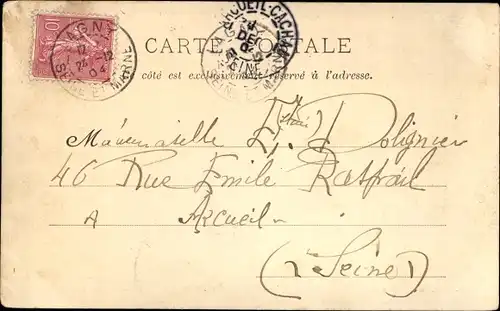 CARTE POSTALE
Ce côté est exclusivement réservé à l'adresse.
ARCUEIL-CACHAN
SEINE
SEINE ET MARNE
04
10
Mademoiselle Dolignier
46 Rue Emile Raspail
A Arcueil
(Seine)